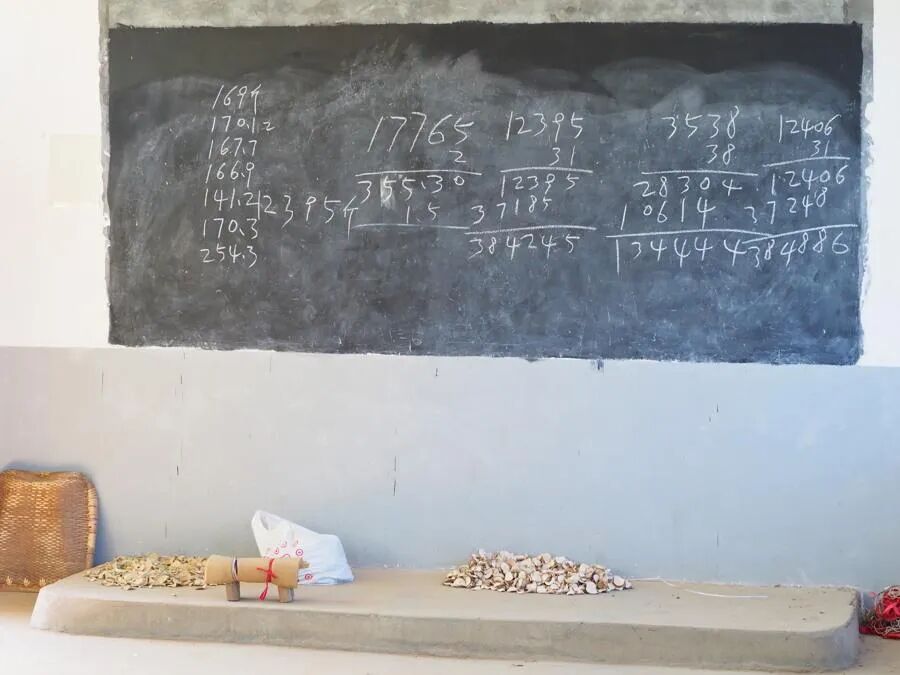 169斤
170.12
167.7
166.9
141.2
170.3
254.3
12395斤
17765
2
355.30
1.5
12395
31
12395
37185
384245
3538
38
28304
10614
134444
12406
31
12406
37248
384886